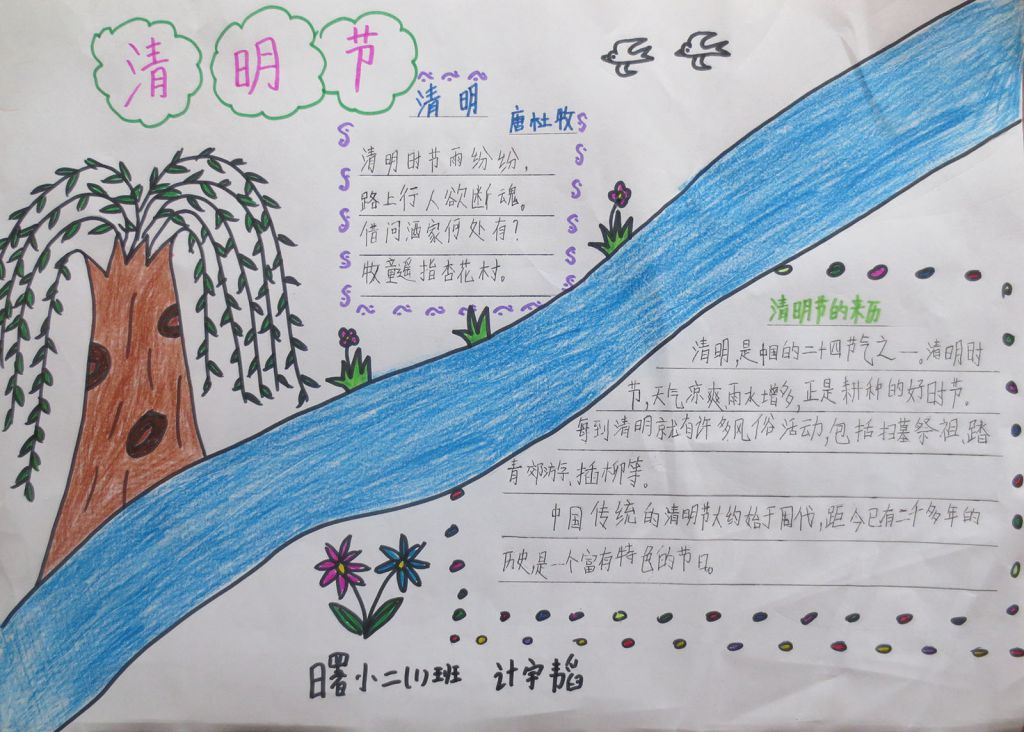 清明节
清明
唐杜牧
清明时节雨纷纷,
路上行人欲断魂。
借问酒家何处有?
牧童遥指杏花村。
清明节的来历
清明,是中国的二十四节气之一。清明时
节,天气凉爽,雨水增多,正是耕种的好时节。
每到清明就有许多风俗活动,包括扫墓祭祖、踏
青郊游、插柳等。
中国传统的清明节大约始于周代,距今已有二千多年的
历史,是一个富有特色的节日。
曙小二(1)班 计宇韬